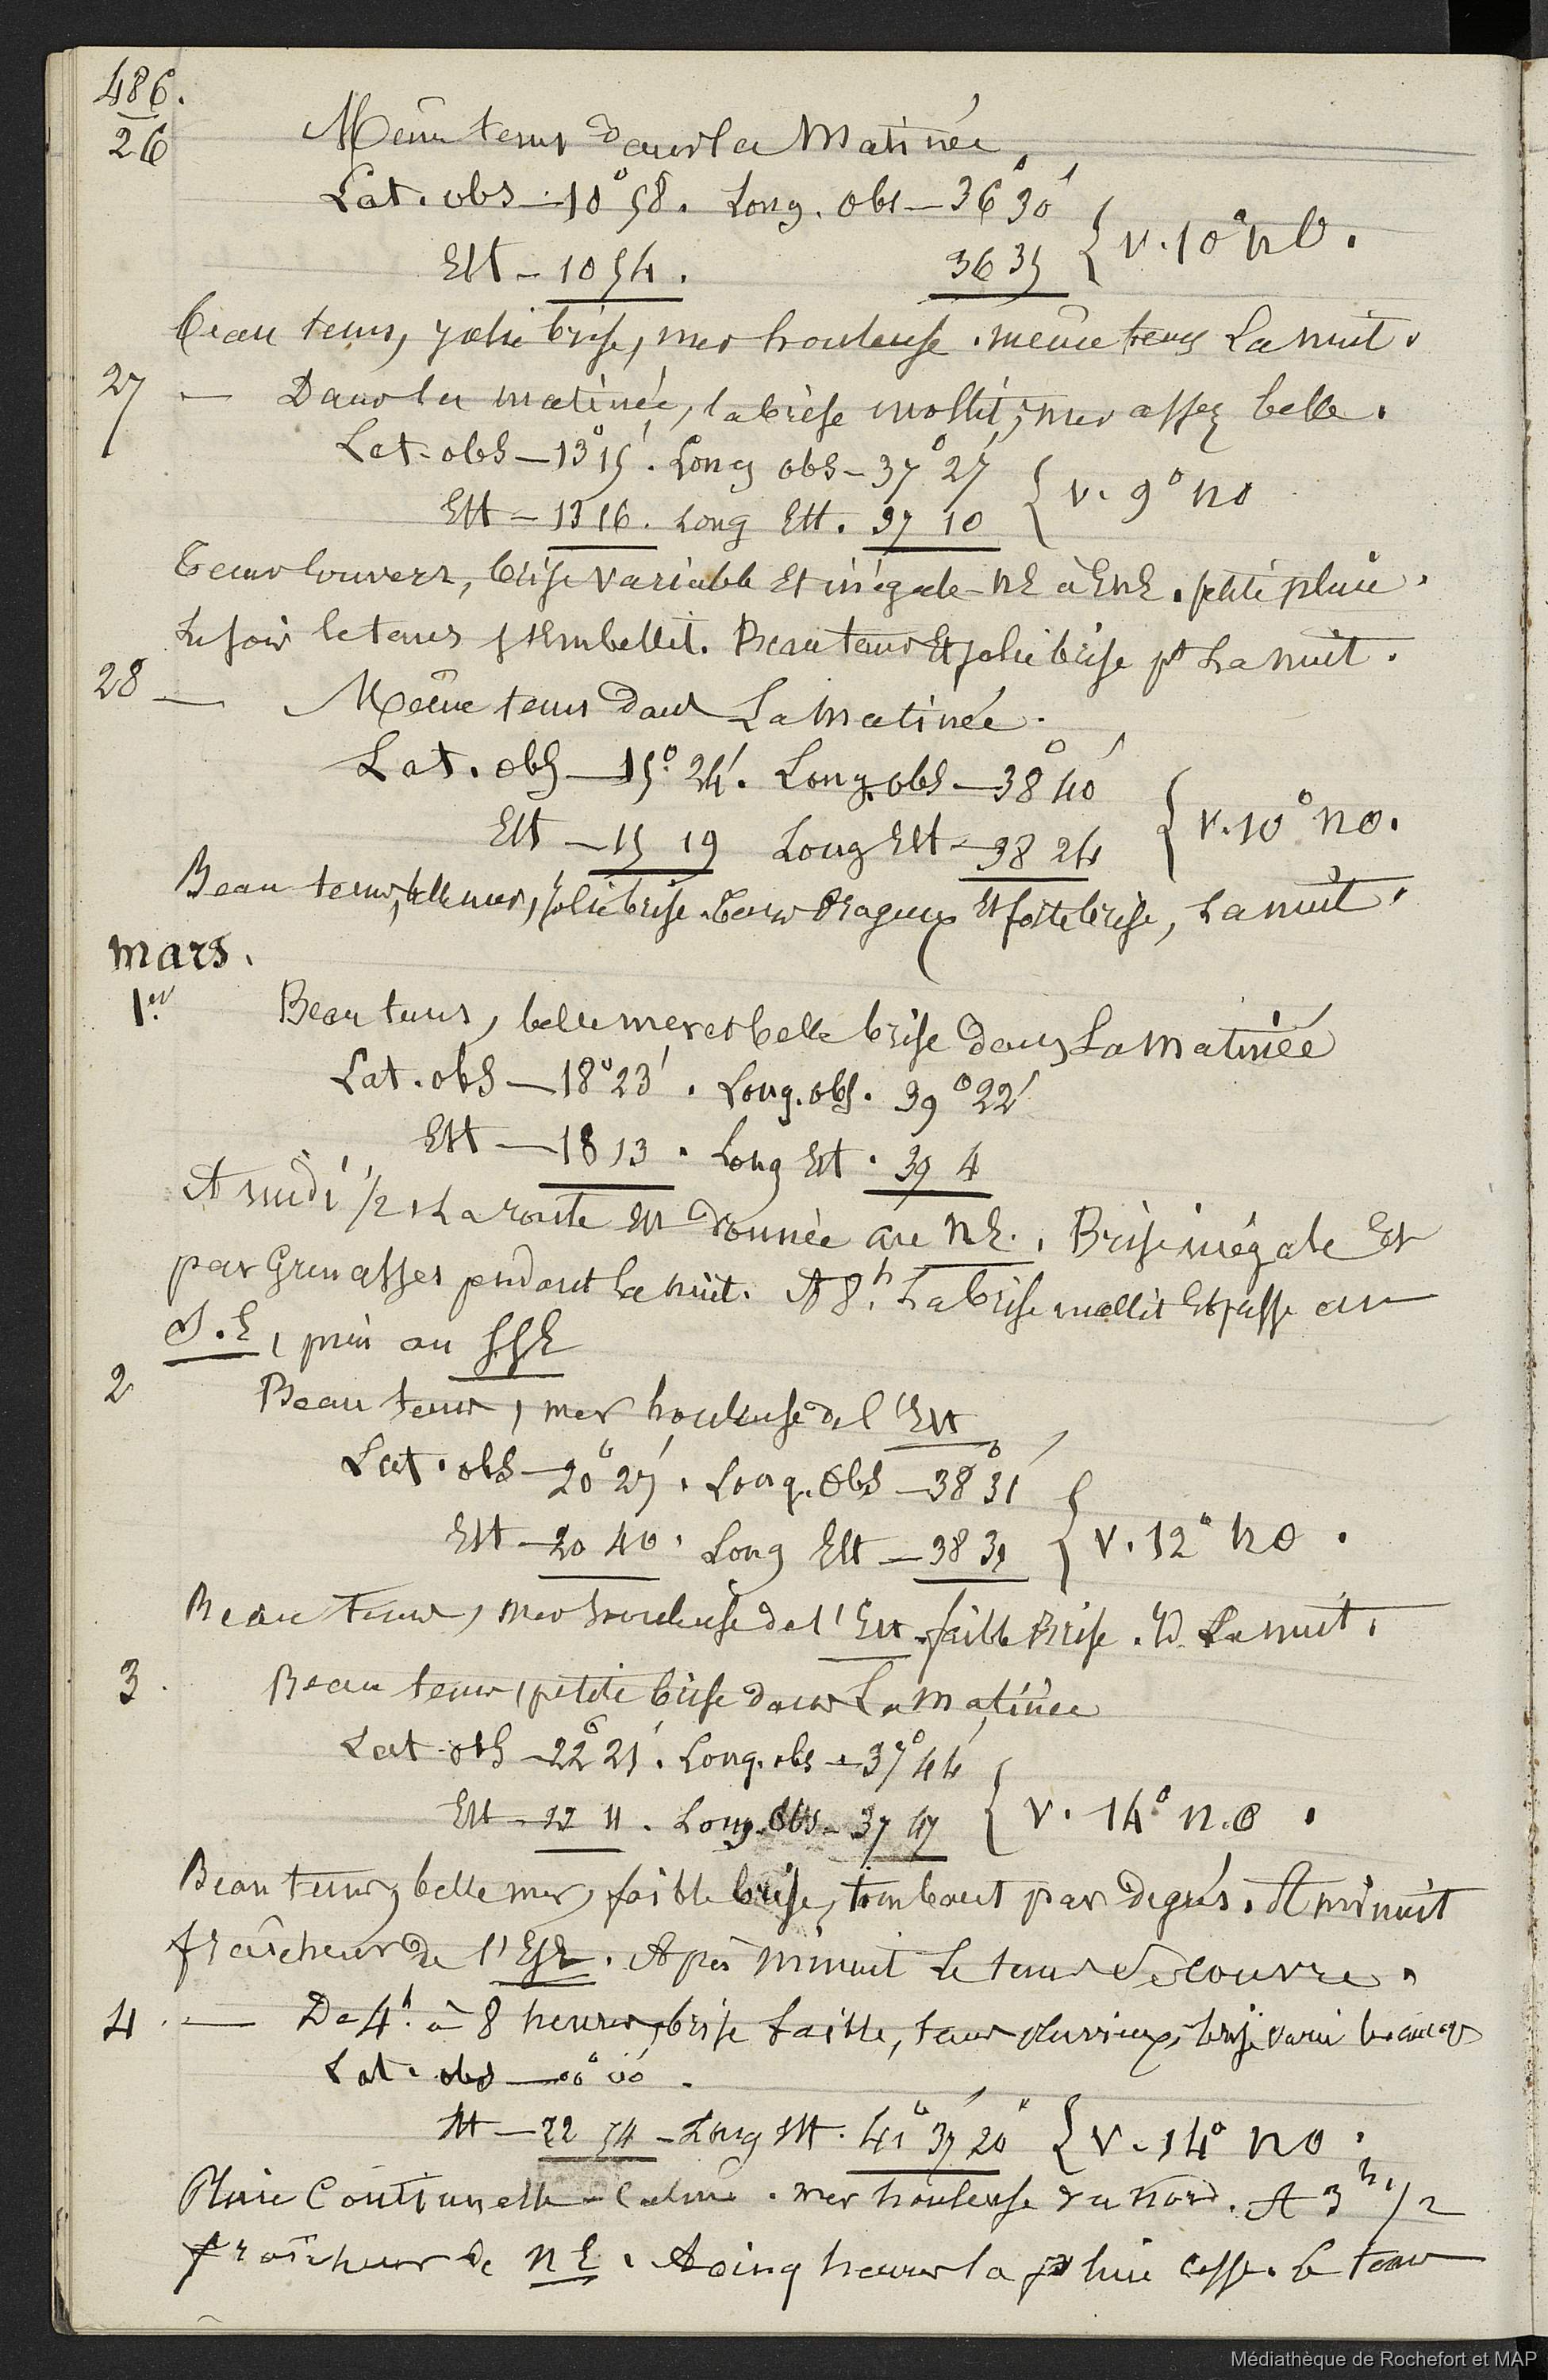 486.
26 Même tems dans la Matinée
Lat. obs — 10° 58. Long. obs — 36° 30'
Est — 10 54. 36 35 { V. 10° no.
Beau tems, jolie brise, mer houleuse. même tems La nuit.
27 — Dans la matinée, la brise mollit, mer assez belle.
Lat. obs — 13° 15'. Long obs — 37° 27'
Est — 13 16. Long Est. 37 10 { V. 9° no
Tems couvert, brise variable Et inégale - NE à ENE. petite pluie.
Le soir le tems s'embellit. Beau tems Et jolie brise pt La nuit.
28 — Même tems dans La matinée.
Lat. obs — 15° 24'. Long. obs — 38° 40'
Est — 15 19 Long Est — 38 24 { V. 10° no.
Beau tems, belle mer, jolie brise. Tems Orageux Et forte brise, La nuit.
mars.
1er Beau tems, belle mer et belle brise dans La matinée
Lat. obs — 18° 23'. Long. obs. 39° 22'
Est — 18 13. Long Est. 39 4
A midi 1/2, La route est donnée au NE. Brise inégale Et
par Grenasses pendant La nuit. A 8h. La brise mollit Et passe au
S.E, puis au SSE
2 Beau tems, mer houleuse de l'Est
Lat. obs — 20° 27'. Long. Obs — 38° 31'
Est — 20 40. Long Est — 38 31 { V. 12° no.
Beau tems, mer houleuse de l'Est. faible Brise. Id La nuit.
3. Beau tems, petite brise dans La matinée
Lat obs — 22° 21'. Long. obs — 37° 44'
Est — 22 11. Long. Obs — 37 47 { V. 14° n.o.
Beau tems, belle mer, faible brise, tombant par degrés. A minuit
fraîcheur de l'ESE. Après minuit Le tems se couvre.
4. — De 4h. à 8 heures, brise faible, tems pluvieux, brise varie beaucoup
Lat. obs — 00° 00'.
Est — 22 54 — Long Est. 41° 37' 20" { V. 14° no.
Pluie Continuelle - Calme. mer houleuse du nord. A 3h 1/2
fraîcheur de NE. A cinq heures la pluie cesse. Le tems
Médiathèque de Rochefort et MAP